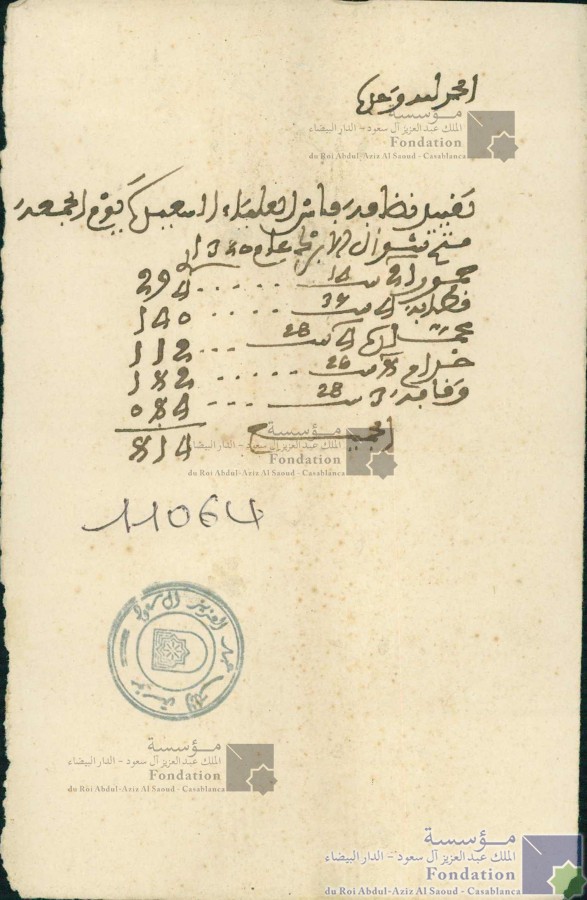 الحمد لله وحده
مؤسسة
الملك عبد العزيز آل سعود - الدار البيضاء
Fondation
du Roi Abdul-Aziz Al Saoud - Casablanca
تقييد نظافة فاس العلياء السعيدة يوم الجمعة
شوال الأبرك عام 1340
14 ..... 294
4 ..... 140
4 28 ... 112
خدام 26 ..... 182
وقافة 3 28 ... 084
الجميع 814
مؤسسة
الملك عبد العزيز آل سعود - الدار البيضاء
Fondation
du Roi Abdul-Aziz Al Saoud - Casablanca
11064
عبد العزيز آل سعود
مؤسسة الملك
مؤسسة
الملك عبد العزيز آل سعود - الدار البيضاء
Fondation
du Roi Abdul-Aziz Al Saoud - Casablanca
مؤسسة
الملك عبد العزيز آل سعود - الدار البيضاء
Fondation
du Roi Abdul-Aziz Al Saoud - Casablanca